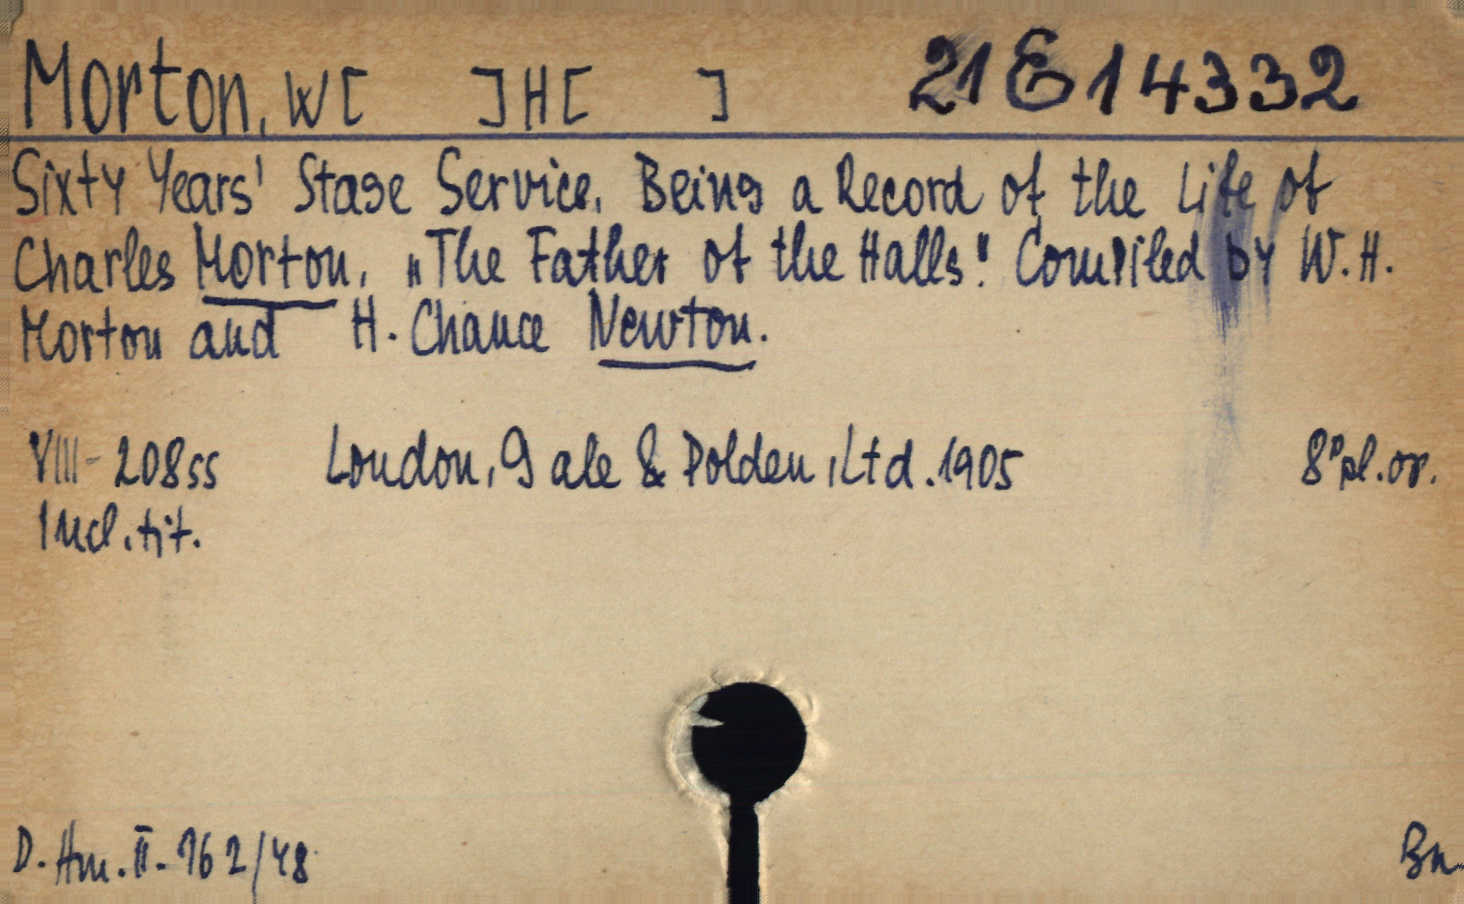 Morton, W[ ]H[ ] 21 E 14332
Sixty Years' Stage Service. Being a Record of the Life of
Charles Morton, „The Father of the Halls". Compiled by W. H.
Morton and H. Chance Newton.
VIII-208ss London, Gale & Polden, Ltd. 1905 8° pl. or.
Incl. tit.
D. Hm. II. 162/48 Bn